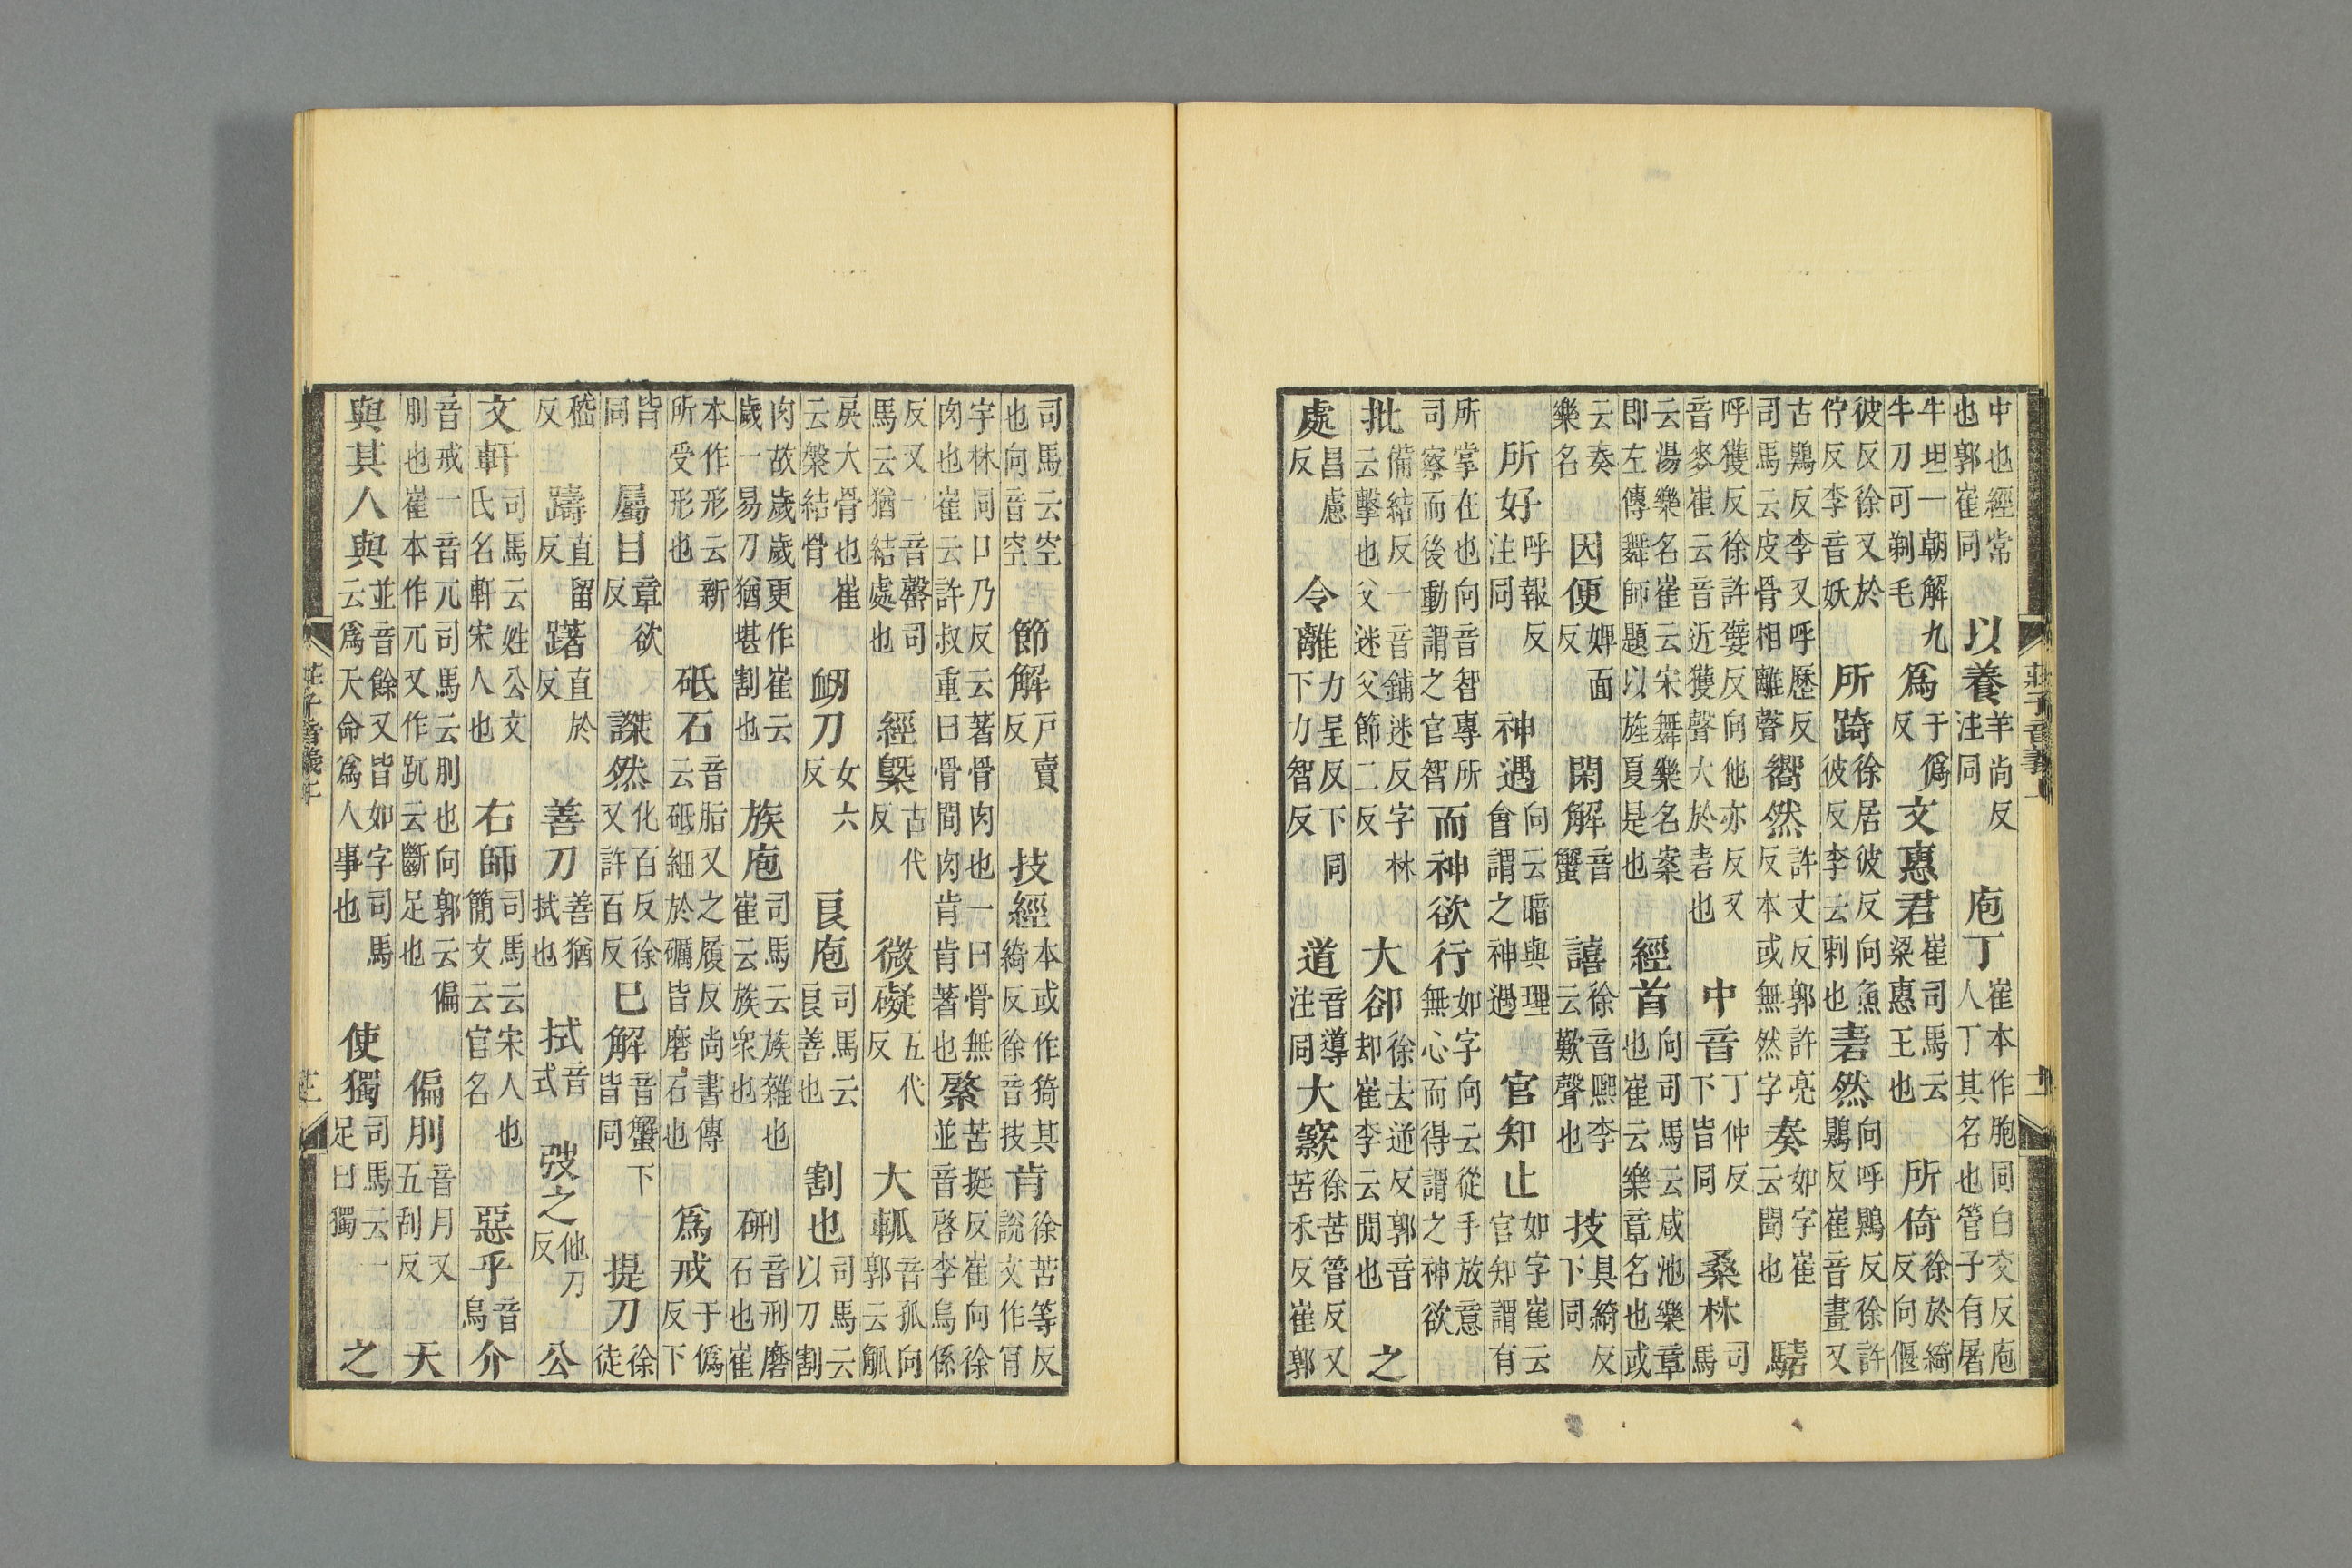 中也經常也郭崔同以養羊尚反注同庖丁崔本作胞同白交反庖人丁其名也管子有屠
牛坦一朝解九牛刀可剃毛爲于僞反文惠君崔司馬云梁惠王也所倚徐於綺反向偃
彼反徐又於佇反李音妖所踦徐居彼反向魚彼反李云刺也砉然向呼鶪反徐許鶪反崔音畫又
古鶪反李又呼歷反司馬云皮骨相離聲嚮然許丈反郭許亮反本或無然字奏如字崔云聞也騞
呼獲反徐許嬖反向他亦反又音麥崔云音近獲聲大於砉也中音丁仲反下皆同桑林司馬
云湯樂名崔云宋舞樂名案即左傳舞師題以旌夏是也經首向司馬云咸池樂章也崔云樂章名也或
云奏樂名因便婢面反閑解音蟹譆徐音熙李云歎聲也技具綺反下同
所好呼報反注同神遇向云暗與理會謂之神遇官知止如字崔云官知謂有
所掌在也向音智專所司察而後動謂之官智而神欲行如字向云從手放意無心而得謂之神欲
批備結反一音鋪迷反字林云擊也父迷父節二反大卻徐去逆反郭音却崔李云閒也之
處昌慮反令離力呈反下同下力智反道音導注同大窾徐苦管反又苦禾反崔郭
莊子音義上
司馬云空也向音空節解戶賣反技經本或作猗其綺反徐音技肯徐苦等反說文作肎
字林同口乃反云著骨肉也一曰骨無肉也崔云許叔重曰骨間肉肯肯著也綮苦挺反崔向徐並音啓李烏係
反又一音罄司馬云猶結處也經槩古代反微礙五代反大軱音孤向郭云觚
戾大骨也崔云槃結骨衂刀女六反良庖司馬云良善也割也司馬云以刀割
肉故歲歲更作崔云歲一易刀猶堪割也族庖司馬云族雜也崔云族衆也硎音刑磨石也崔
本作形云新所受形也砥石音脂又之履反尚書傳云砥細於礪皆磨石也爲戒于僞反下
皆同屬目章欲反謋然化百反徐又許百反已解音蟹下皆同提刀徐徒
嵇反躊直留反躇直於反善刀善猶拭也拭音式弢之他刀反公
文軒司馬云姓公文氏名軒宋人也右師司馬云宋人也簡文云官名惡乎音烏介
音戒一音兀司馬云刖也向郭云偏刖也崔本作兀又作䟢云斷足也偏刖音月又五刮反天
與其人與並音餘又皆如字司馬云爲天命爲人事也使獨司馬云一足曰獨之